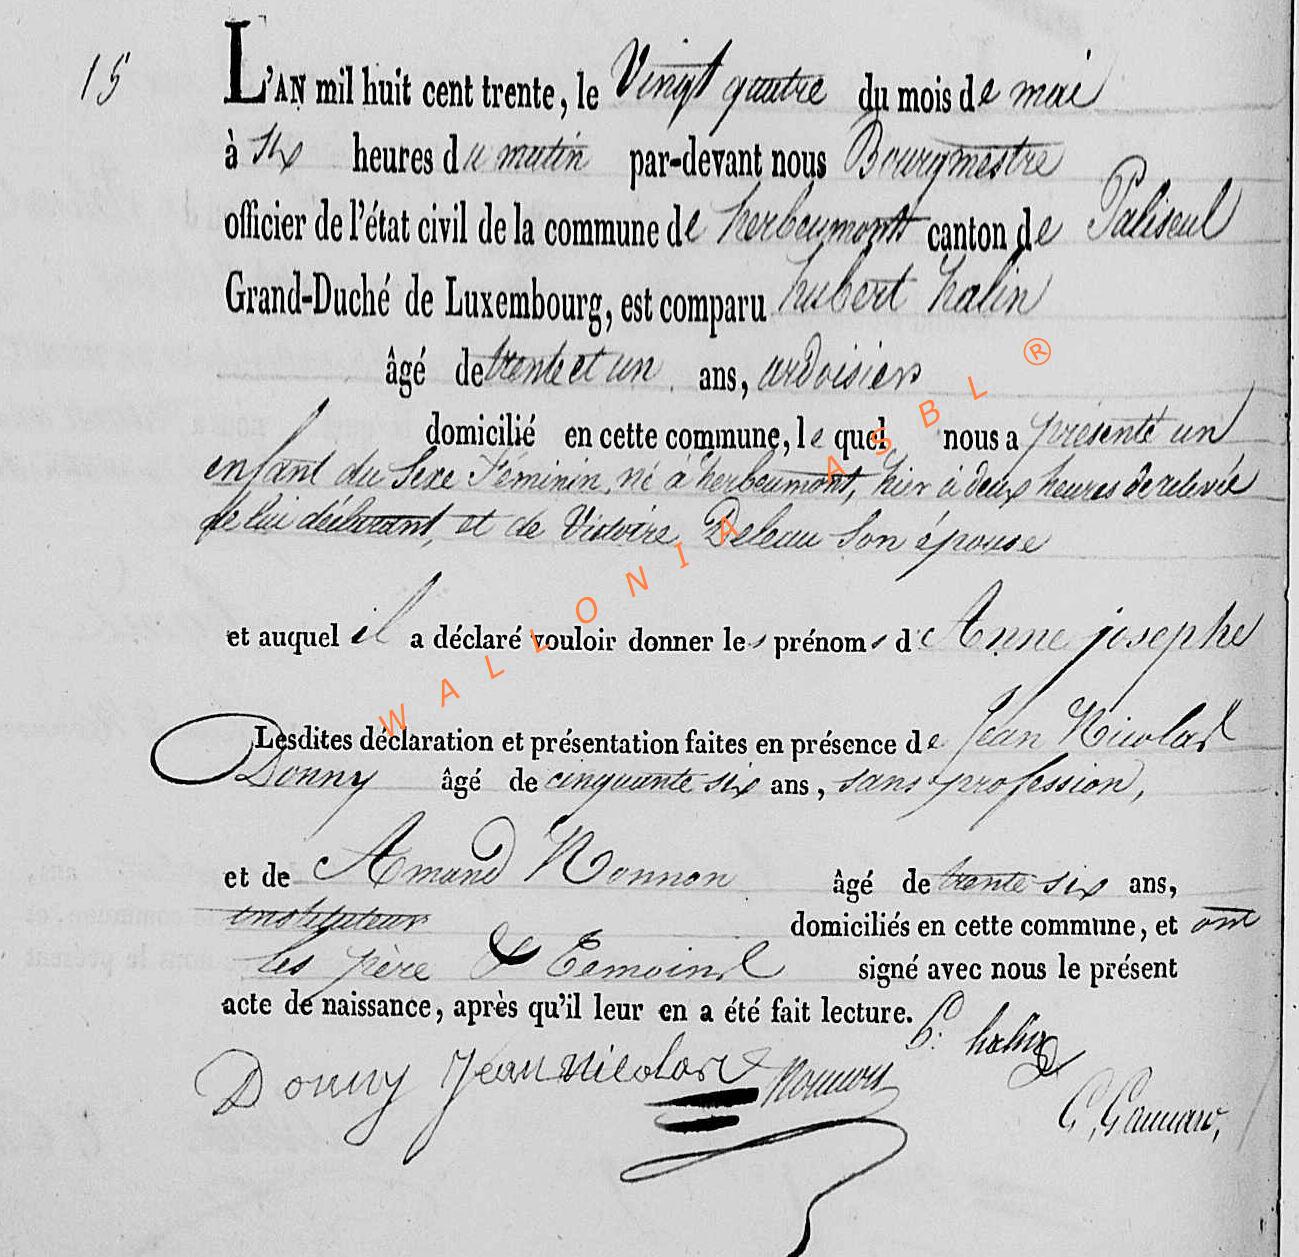 15
L'AN mil huit cent trente, le Vingt quatre du mois de mai
à six heures du matin par-devant nous Bourgmestre
officier de l'état civil de la commune de herbeumont canton de Paliseul
Grand-Duché de Luxembourg, est comparu hubert halin
âgé de trente et un ans, ardoisier
domicilié en cette commune, le quel nous a présenté un
enfant du Sexe Féminin, né à herbeumont, hier à deux heures de relevée
de lui déclarant, et de Victoire Deleau Son épouse
et auquel il a déclaré vouloir donner les prénoms d'Anne josephe
Lesdites déclaration et présentation faites en présence de Jean Nicolas
Donny âgé de cinquante six ans, sans profession,
et de Amand Nonnon âgé de trente six ans,
instituteur domiciliés en cette commune, et ont
les père & Temoins signé avec nous le présent
acte de naissance, après qu'il leur en a été fait lecture.
h. halin
Donny Jean Nicolas Nonnon
WALLONIA ASBL ®